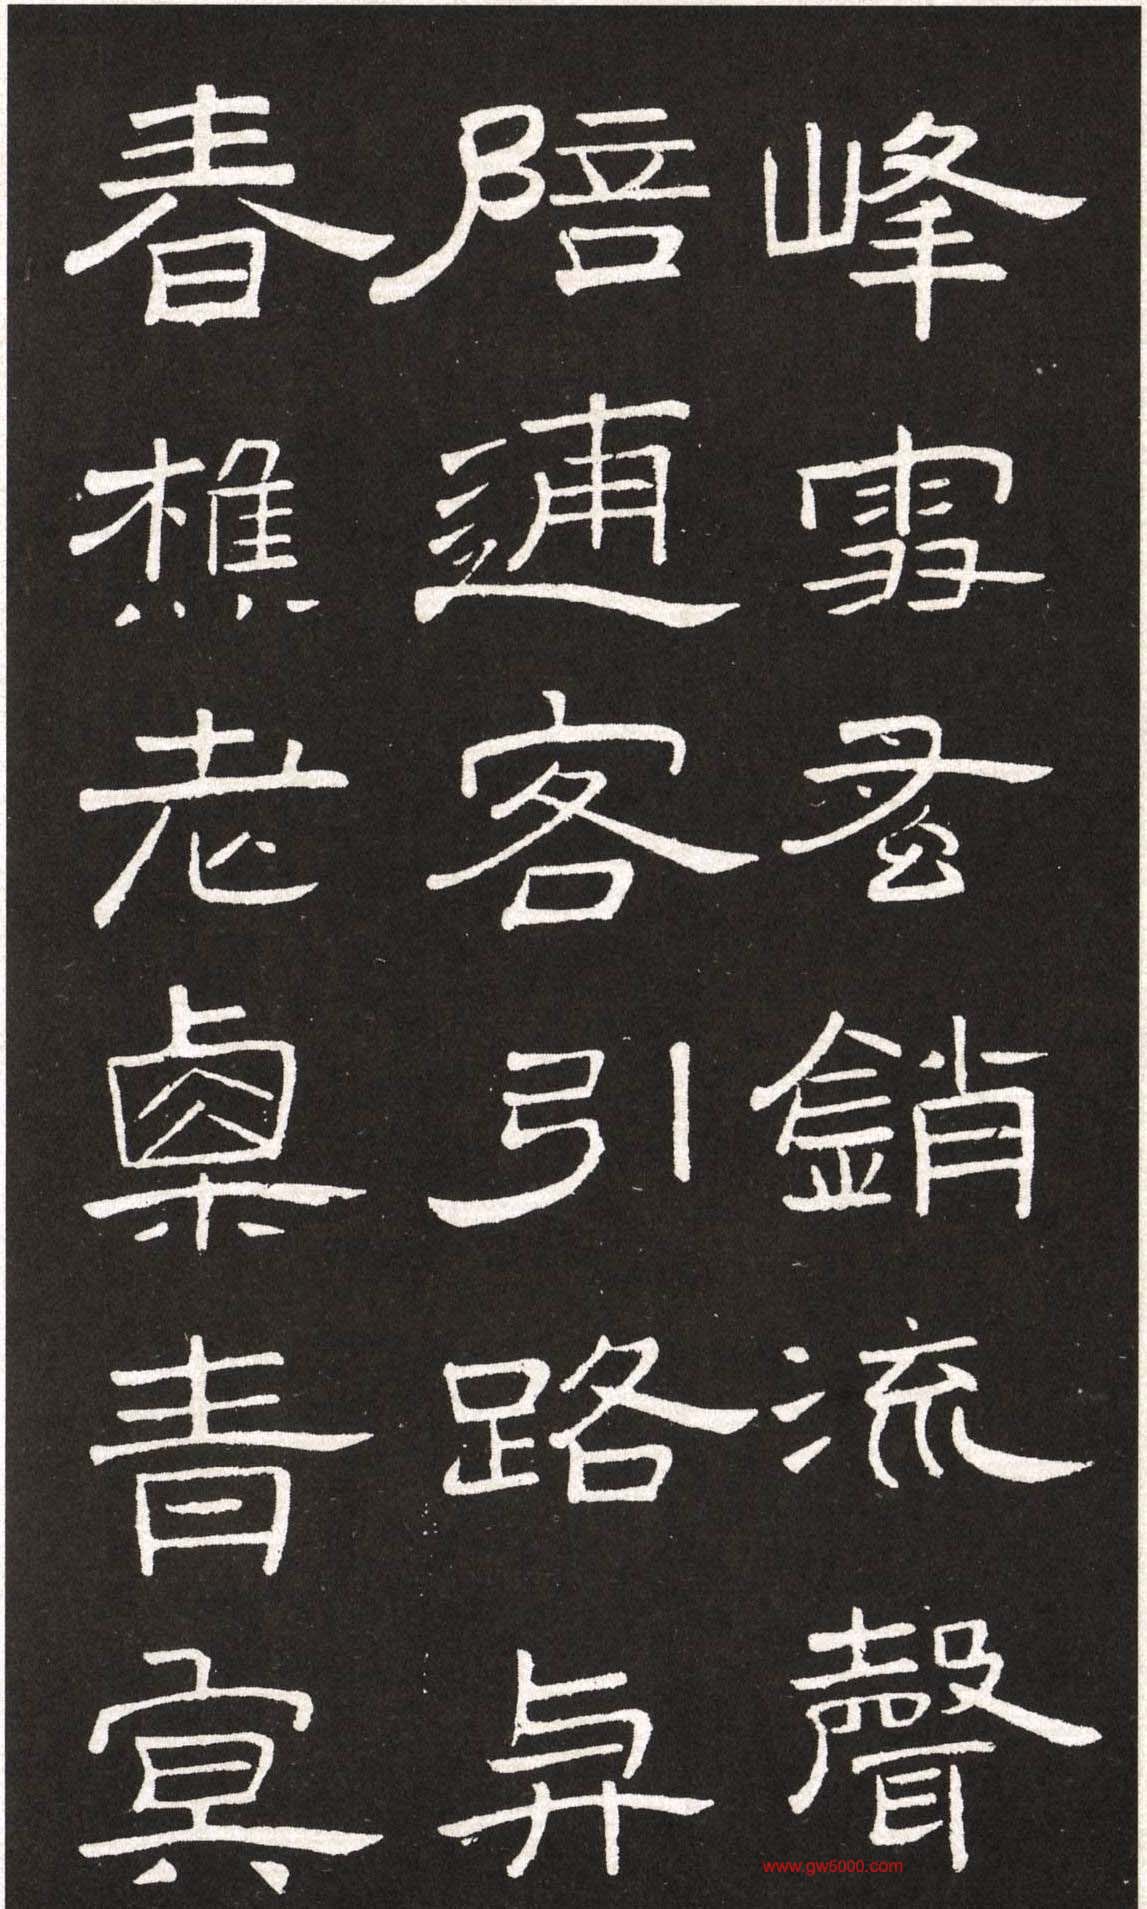 峰雪蚤銷流聲
陪逋客引路与
春樵老㮚青冥
www.gw5000.com